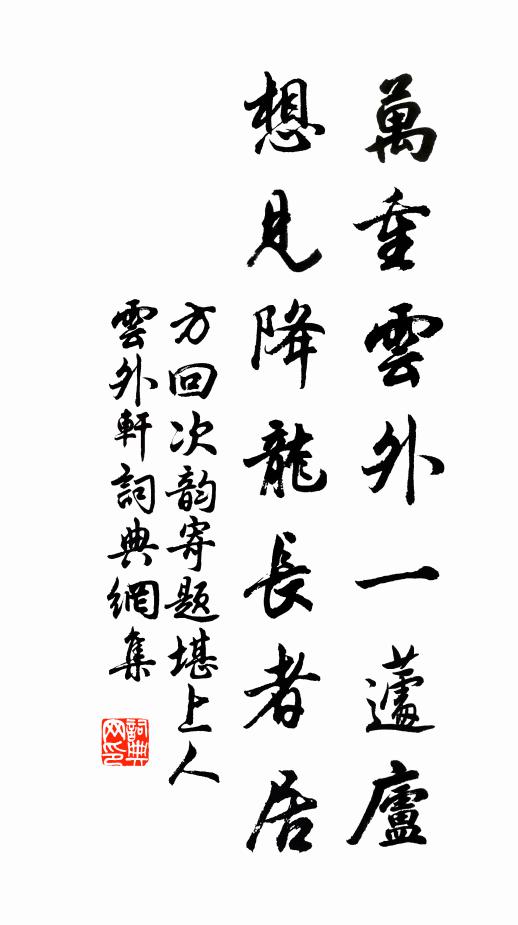 萬重雲外一蘧廬
想見降龍長者居
方回次韵寄题堪上人
雲外軒詞典網集
詞典网印